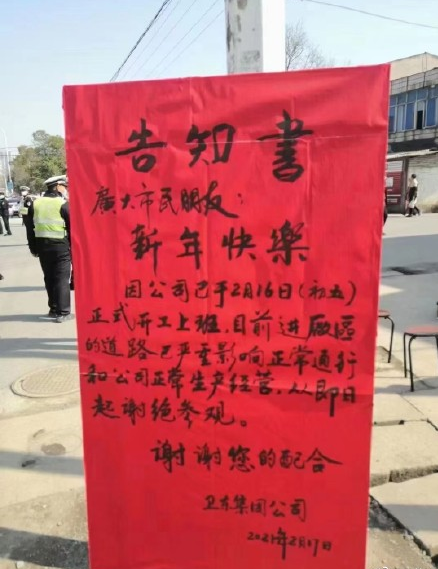 告知書
廣大市民朋友:
新年快樂
因公司已于2月16日(初五)
正式开工上班,目前进廠區
的道路已严重影响正常通行
和公司正常生产经营,从即日
起谢绝参观。
谢谢您的配合
卫东集团公司
2021年2月17日